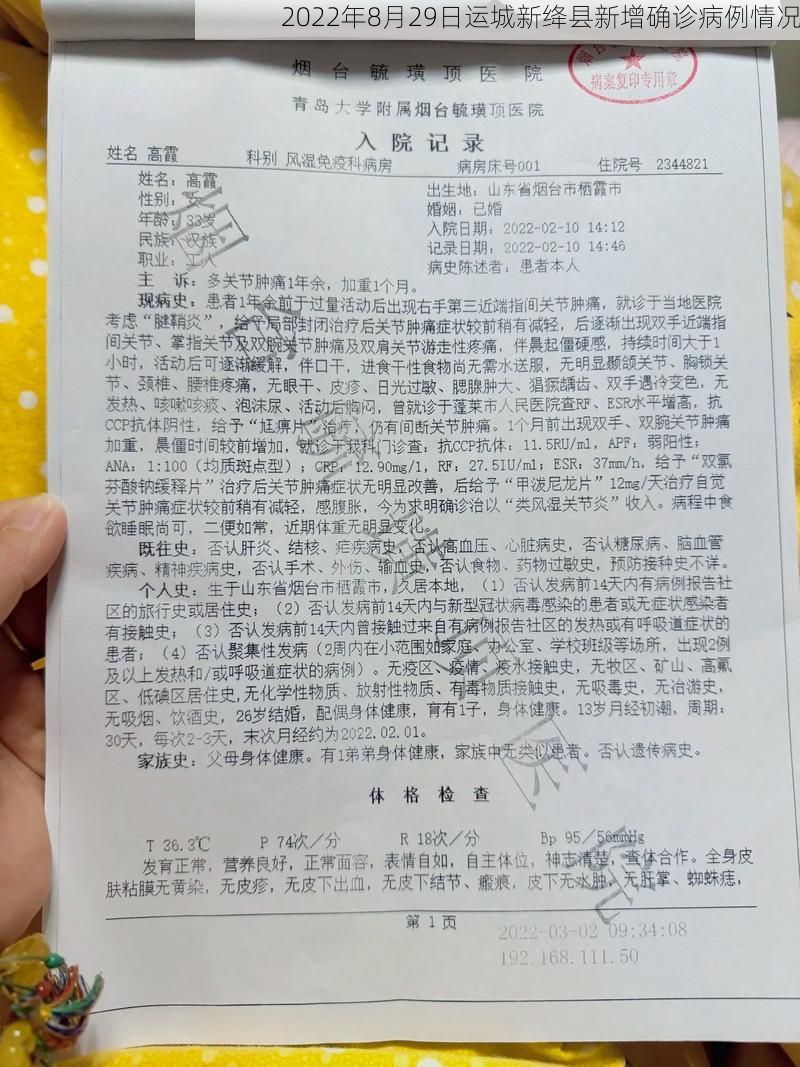 2022年8月29日运城新绛县新增确诊病例情况
烟台毓璜顶医院
病案复印专用章
青岛大学附属烟台毓璜顶医院
入院记录
姓名 高霞 科别 风湿免疫科病房 病房床号001 住院号 2344821
姓名：高霞 出生地：山东省烟台市栖霞市
性别：女 婚姻：已婚
年龄：33岁 入院日期：2022-02-10 14:12
民族：汉族 记录日期：2022-02-10 14:46
职业：工人 病史陈述者：患者本人
主 诉：多关节肿痛1年余，加重1个月。
现病史：患者1年余前于过量活动后出现右手第三近端指间关节肿痛，就诊于当地医院
考虑“腱鞘炎”，给予局部封闭治疗后关节肿痛症状较前稍有减轻，后逐渐出现双手近端指
间关节、掌指关节及双腕关节肿痛及双肩关节游走性疼痛，伴晨起僵硬感，持续时间大于1
小时，活动后可逐渐缓解，伴口干，进食干性食物尚无需水送服，无明显颞颌关节、胸锁关
节、颈椎、腰椎疼痛，无眼干、皮疹、日光过敏、腮腺肿大、猖獗龋齿、双手遇冷变色，无
发热、咳嗽咳痰、泡沫尿、活动后胸闷，曾就诊于蓬莱市人民医院查RF、ESR水平增高，抗
CCP抗体阴性，给予“尪痹片”治疗，仍有间断关节肿痛。1个月前出现双手、双腕关节肿痛
加重，晨僵时间较前增加，就诊于我科门诊查：抗CCP抗体：11.5RU/ml，APF：弱阳性；
ANA：1:100（均质斑点型）；CRP：12.90mg/l，RF：27.5IU/ml；ESR：37mm/h，给予“双氯
芬酸钠缓释片”治疗后关节肿痛症状无明显改善，后给予“甲泼尼龙片”12mg/天治疗自觉
关节肿痛症状较前稍有减轻，感腹胀，今为求明确诊治以“类风湿关节炎”收入。病程中食
欲睡眠尚可，二便如常，近期体重无明显变化。
既往史：否认肝炎、结核、疟疾病史，否认高血压、心脏病史，否认糖尿病、脑血管
疾病、精神疾病史，否认手术、外伤、输血史，否认食物、药物过敏史，预防接种史不详。
个人史：生于山东省烟台市栖霞市，久居本地，（1）否认发病前14天内有病例报告社
区的旅行史或居住史；（2）否认发病前14天内与新型冠状病毒感染的患者或无症状感染者
有接触史；（3）否认发病前14天内曾接触过来自有病例报告社区的发热或有呼吸道症状的
患者；（4）否认聚集性发病（2周内在小范围如家庭、办公室、学校班级等场所，出现2例
及以上发热和/或呼吸道症状的病例）。无疫区、疫情、疫水接触史，无牧区、矿山、高氟
区、低碘区居住史,无化学性物质、放射性物质、有毒物质接触史，无吸毒史，无冶游史，
无吸烟、饮酒史，26岁结婚，配偶身体健康，育有1子，身体健康。13岁月经初潮，周期：
30天，每次2-3天，末次月经约为2022.02.01。
家族史：父母身体健康。有1弟弟身体健康，家族中无类似患者。否认遗传病史。
体格检查
T 36.3℃ P 74次／分 R 18次／分 Bp 95／56mmHg
发育正常，营养良好，正常面容，表情自如，自主体位，神志清楚，查体合作。全身皮
肤粘膜无黄染，无皮疹，无皮下出血，无皮下结节、瘢痕，皮下无水肿，无肝掌、蜘蛛痣，
第 1 页
2022-03-02 09:34:08
192.168.111.50